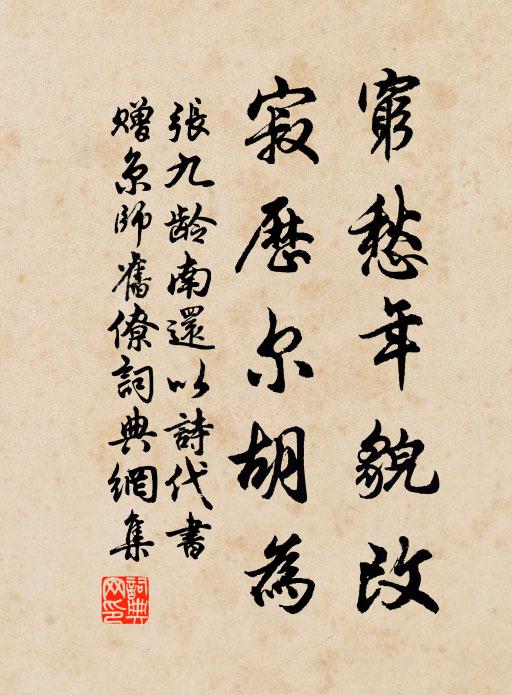 窮愁年貌改
寂歷尔胡為
張九龄南還以詩代書
赠京師舊僚詞典網集
詞典網印